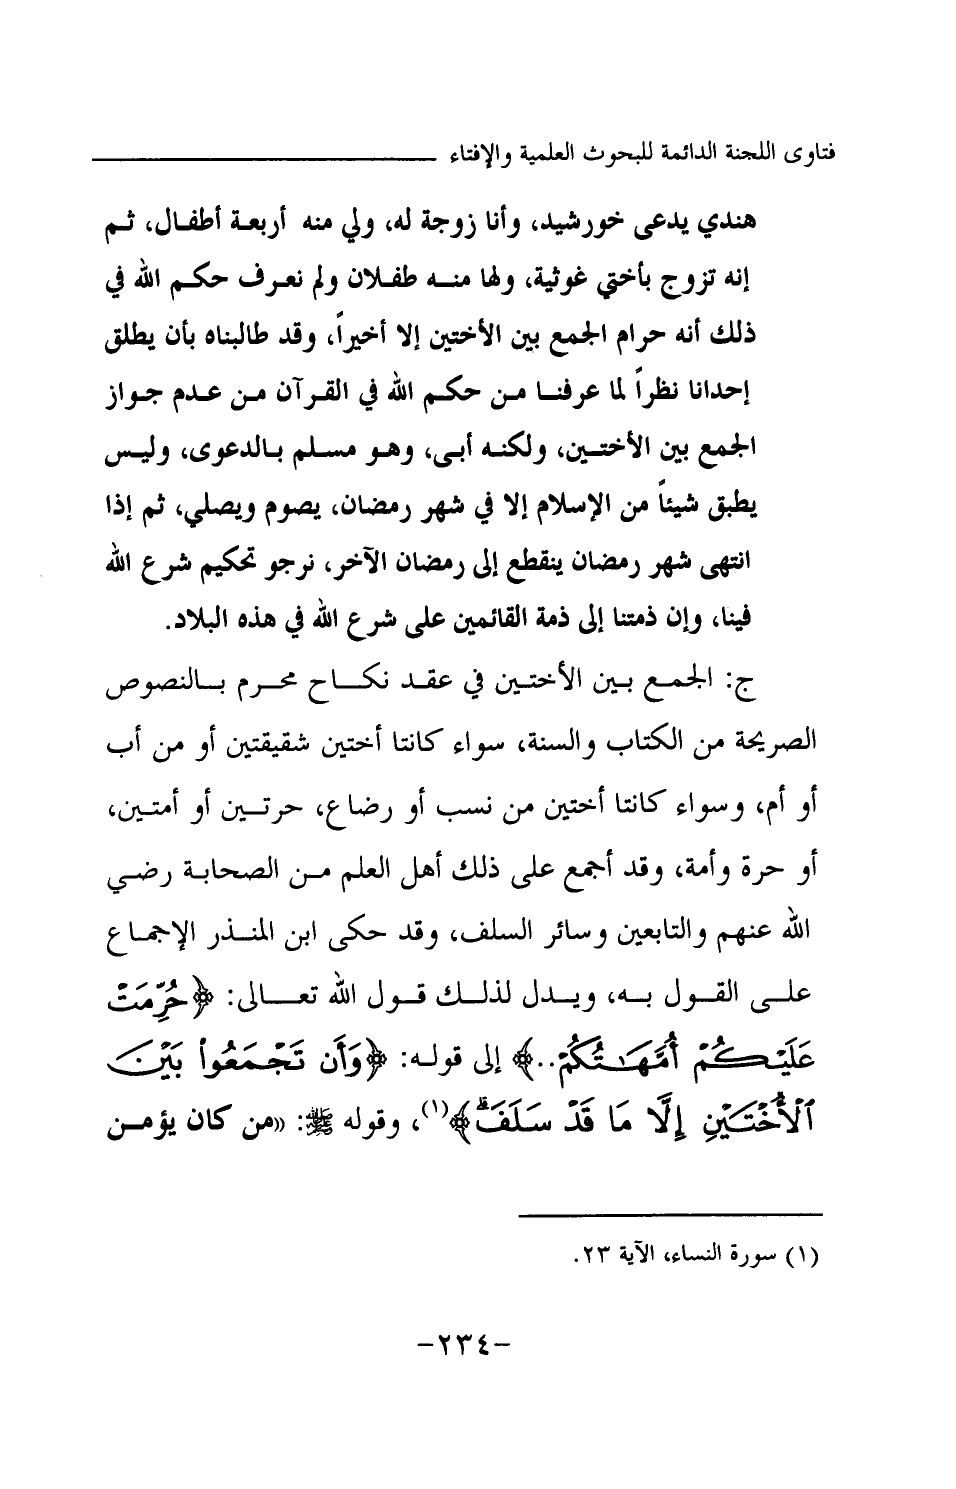 فتاوى اللجنة الدائمة للبحوث العلمية والإفتاء
هندي يدعى خورشيد، وأنا زوجة له، ولي منه أربعة أطفال، ثم
إنه تزوج بأختي غوثية، ولها منه طفلان ولم نعرف حكم الله في
ذلك أنه حرام الجمع بين الأختين إلا أخيراً، وقد طالبناه بأن يطلق
إحدانا نظراً لما عرفنا من حكم الله في القرآن من عدم جواز
الجمع بين الأختين، ولكنه أبى، وهو مسلم بالدعوى، وليس
يطبق شيئاً من الإسلام إلا في شهر رمضان، يصوم ويصلي، ثم إذا
انتهى شهر رمضان ينقطع إلى رمضان الآخر، نرجو تحكيم شرع الله
فينا، وإن ذمتنا إلى ذمة القائمين على شرع الله في هذه البلاد.
ج: الجمع بين الأختين في عقد نكاح محرم بالنصوص
الصريحة من الكتاب والسنة، سواء كانتا أختين شقيقتين أو من أب
أو أم، وسواء كانتا أختين من نسب أو رضاع، حرتين أو أمتين،
أو حرة وأمة، وقد أجمع على ذلك أهل العلم من الصحابة رضي
الله عنهم والتابعين وسائر السلف، وقد حكى ابن المنذر الإجماع
على القول به، ويدل لذلك قول الله تعالى: ﴿حُرِّمَتْ
عَلَيْكُمْ أُمَّهَـٰتُكُمْ..﴾ إلى قوله: ﴿وَأَن تَجْمَعُوا۟ بَيْنَ
ٱلْأُخْتَيْنِ إِلَّا مَا قَدْ سَلَفَ ۗ﴾(١)، وقوله ﷺ: «من كان يؤمن
(١) سورة النساء، الآية ٢٣.
-٢٣٤-